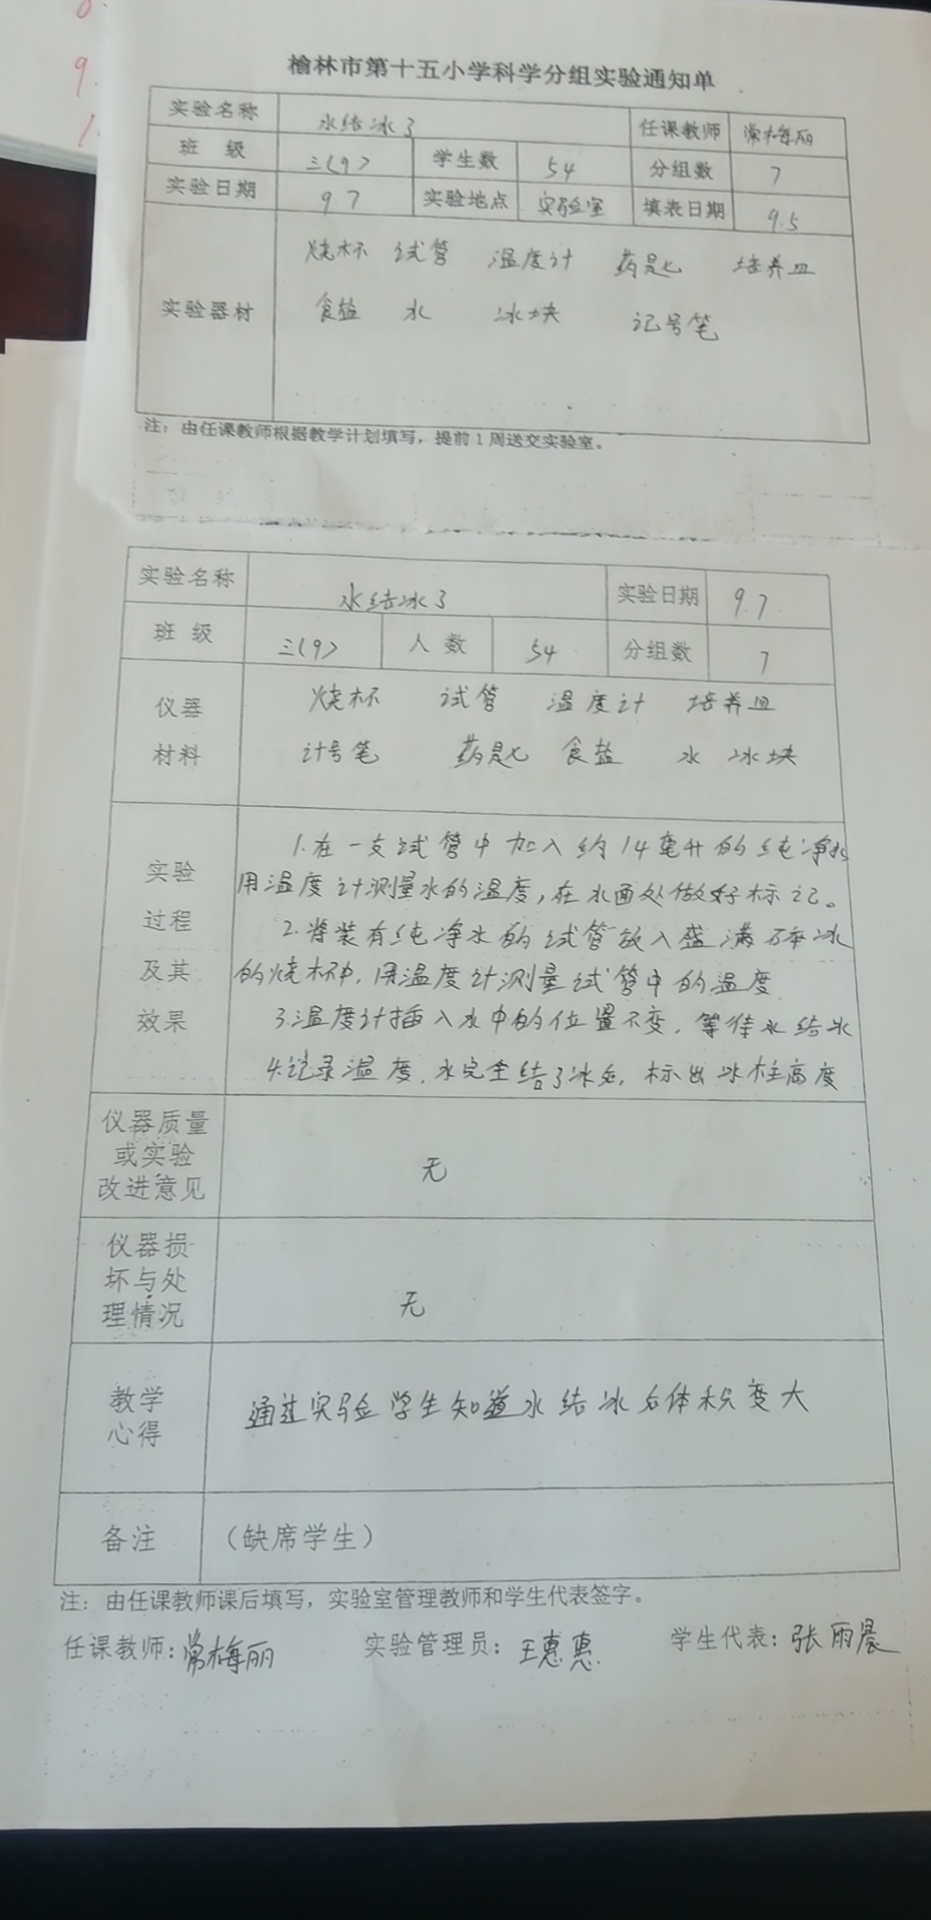 榆林市第十五小学科学分组实验通知单
实验名称 水结冰了 任课教师 常梅丽
班 级 三(9) 学生数 54 分组数 7
实验日期 9.7 实验地点 实验室 填表日期 9.5
烧杯 试管 温度计 药匙 培养皿
实验器材 食盐 水 冰块 记号笔
注：由任课教师根据教学计划填写，提前1周送交实验室。
实验名称 水结冰了 实验日期 9.7
班 级 三(9) 人数 54 分组数 7
仪器 烧杯 试管 温度计 培养皿
材料 计号笔 药匙 食盐 水 冰块
实验 1.在一支试管中加入约14毫升的纯净水
用温度计测量水的温度，在水面处做好标记。
过程 2.将装有纯净水的试管放入盛满碎冰
及其 的烧杯中，用温度计测量试管中的温度
效果 3.温度计插入水中的位置不变，等待水结冰
4.记录温度，水完全结了冰后，标出冰柱高度
仪器质量
或实验
改进意见 无
仪器损
坏与处
理情况 无
教学 通过实验学生知道水结冰后体积变大
心得
备注 （缺席学生）
注：由任课教师课后填写，实验室管理教师和学生代表签字。
任课教师：常梅丽 实验管理员：王惠惠 学生代表：张雨晨